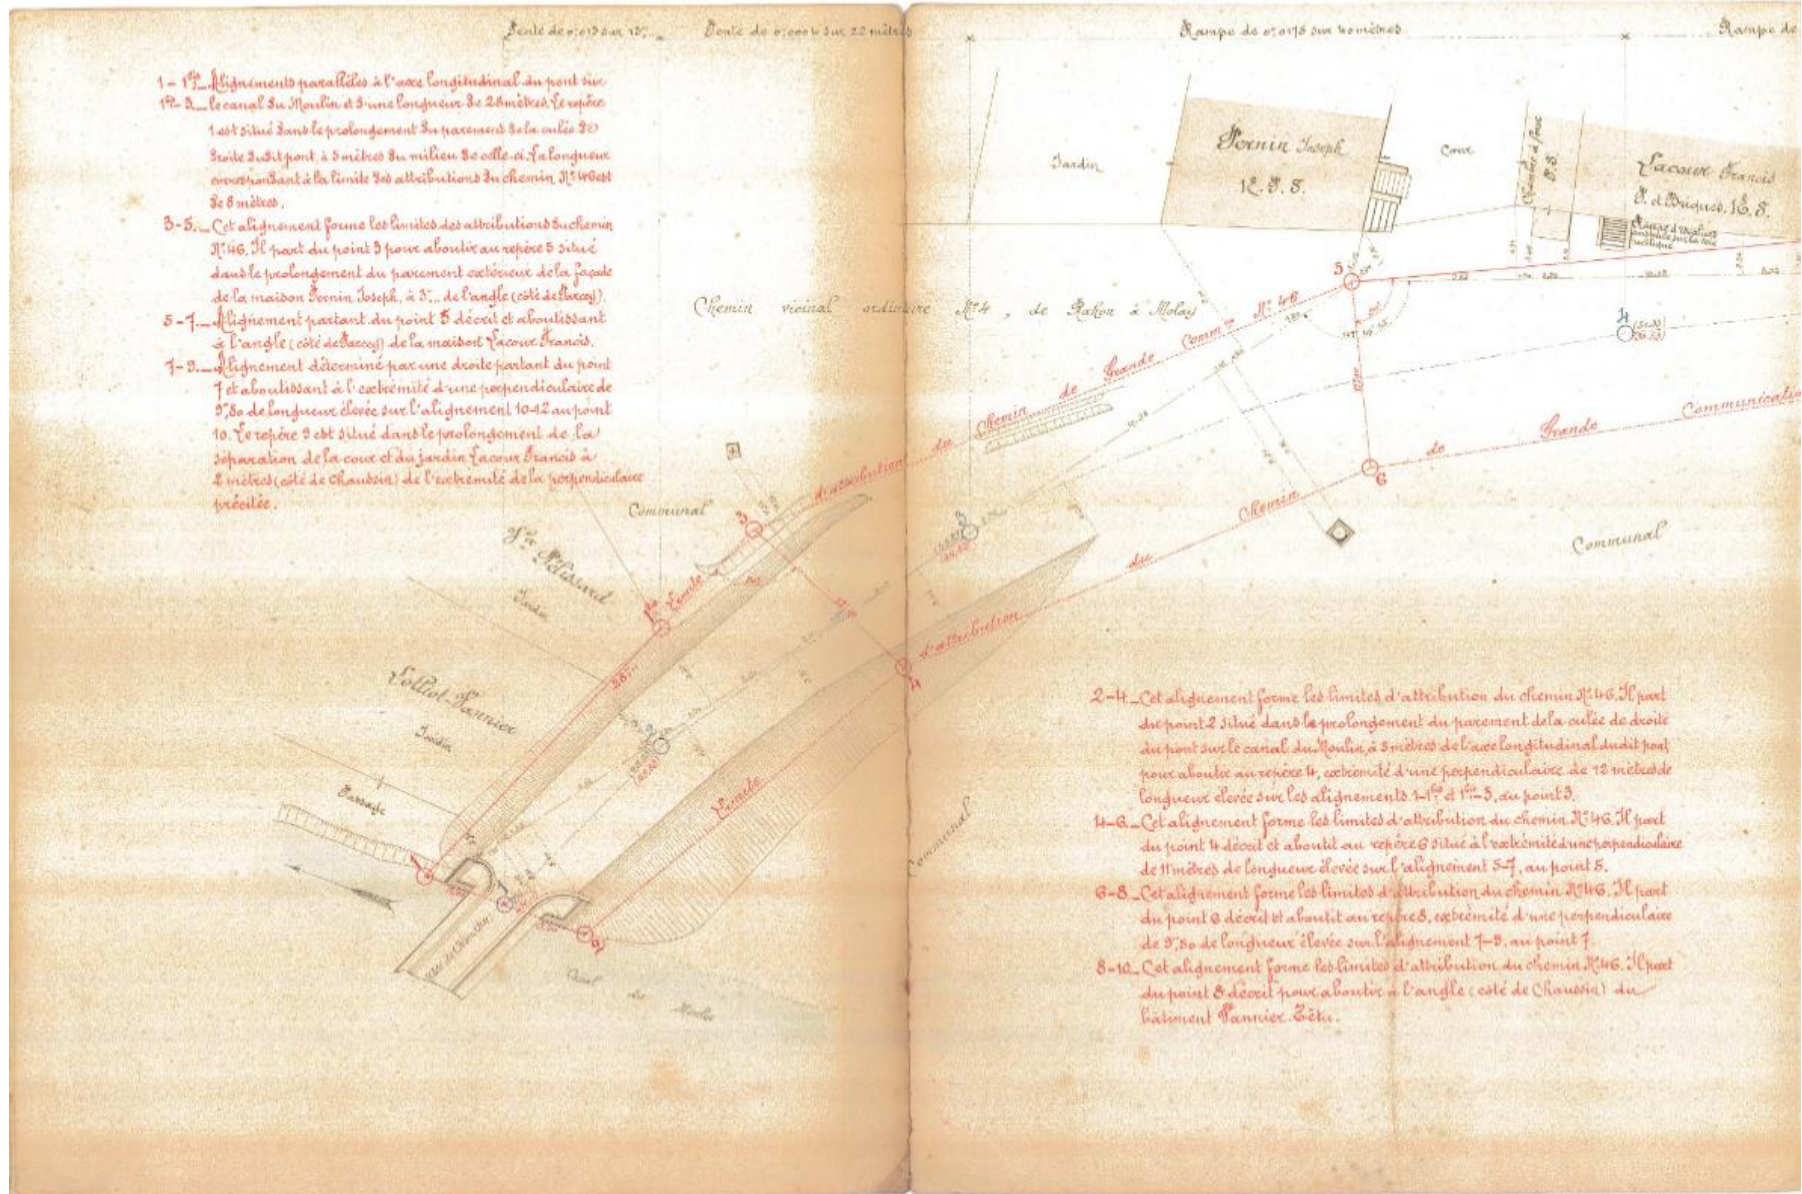 Pente de 0,013 sur 12m
Pente de 0,0004 sur 22 mètres
Rampe de 0,0175 sur 40 mètres
Rampe de
1-1bis_ Alignements parallèles à l'axe longitudinal du pont sur
1bis-3._ le canal du Moulin et d'une longueur de 28 mètres. Le repère
1 est situé dans le prolongement du parement de la culée de
droite dudit pont, à 5 mètres du milieu de celle-ci. La longueur
correspondant à la limite des attributions du chemin No 46 est
de 8 mètres.
3-5._ Cet alignement forme les limites des attributions du chemin
No 46. Il part du point 3 pour aboutir au repère 5 situé
dans le prolongement du parement extérieur de la façade
de la maison Pernin Joseph, à 3m de l'angle (côté de Parcey).
5-7._ Alignement partant du point 5 décrit et aboutissant
à l'angle (côté de Parcey) de la maison Lacour Francis.
7-9._ Alignement déterminé par une droite partant du point
7 et aboutissant à l'extrémité d'une perpendiculaire de
9m,80 de longueur élevée sur l'alignement 10-12 au point
10. Le repère 9 est situé dans le prolongement de la
séparation de la cour et du jardin Lacour Francis à
2 mètres (côté de Chaussin) de l'extrémité de la perpendiculaire
précitée.
Jardin
Pernin Joseph
1E. P. S.
Cour
Chambre à four
P. S.
Lacour Francis
P. et Briques. 1E. S.
Chemin vicinal ordinaire No 4, de Rahon à Molay
Limite d'attribution du Chemin de Grande Comm.on No 46
5
4
6
3
Communal
Jardin
Lolliot-Pannier
Jardin
Passage
1bis
3
28m
2
4
1
1
2
Canal du Moulin
Communal
Limite d'attribution du Chemin de Grande Communication
Communal
2-4._ Cet alignement forme les limites d'attribution du chemin No 46. Il part
du point 2 situé dans le prolongement du parement de la culée de droite
du pont sur le canal du Moulin, à 5 mètres de l'axe longitudinal dudit pont,
pour aboutir au repère 4, extrémité d'une perpendiculaire de 12 mètres de
longueur élevée sur les alignements 1-1bis et 1bis-3, au point 3.
4-6._ Cet alignement forme les limites d'attribution du chemin No 46. Il part
du point 4 décrit et aboutit au repère 6 situé à l'extrémité d'une perpendiculaire
de 11 mètres de longueur élevée sur l'alignement 5-7, au point 5.
6-8._ Cet alignement forme les limites d'attribution du chemin No 46. Il part
du point 6 décrit et aboutit au repère 8, extrémité d'une perpendiculaire
de 9m,80 de longueur élevée sur l'alignement 7-9, au point 7.
8-10_ Cet alignement forme les limites d'attribution du chemin No 46. Il part
du point 8 décrit pour aboutir à l'angle (côté de Chaussin) du
bâtiment Pannier-Têtu.